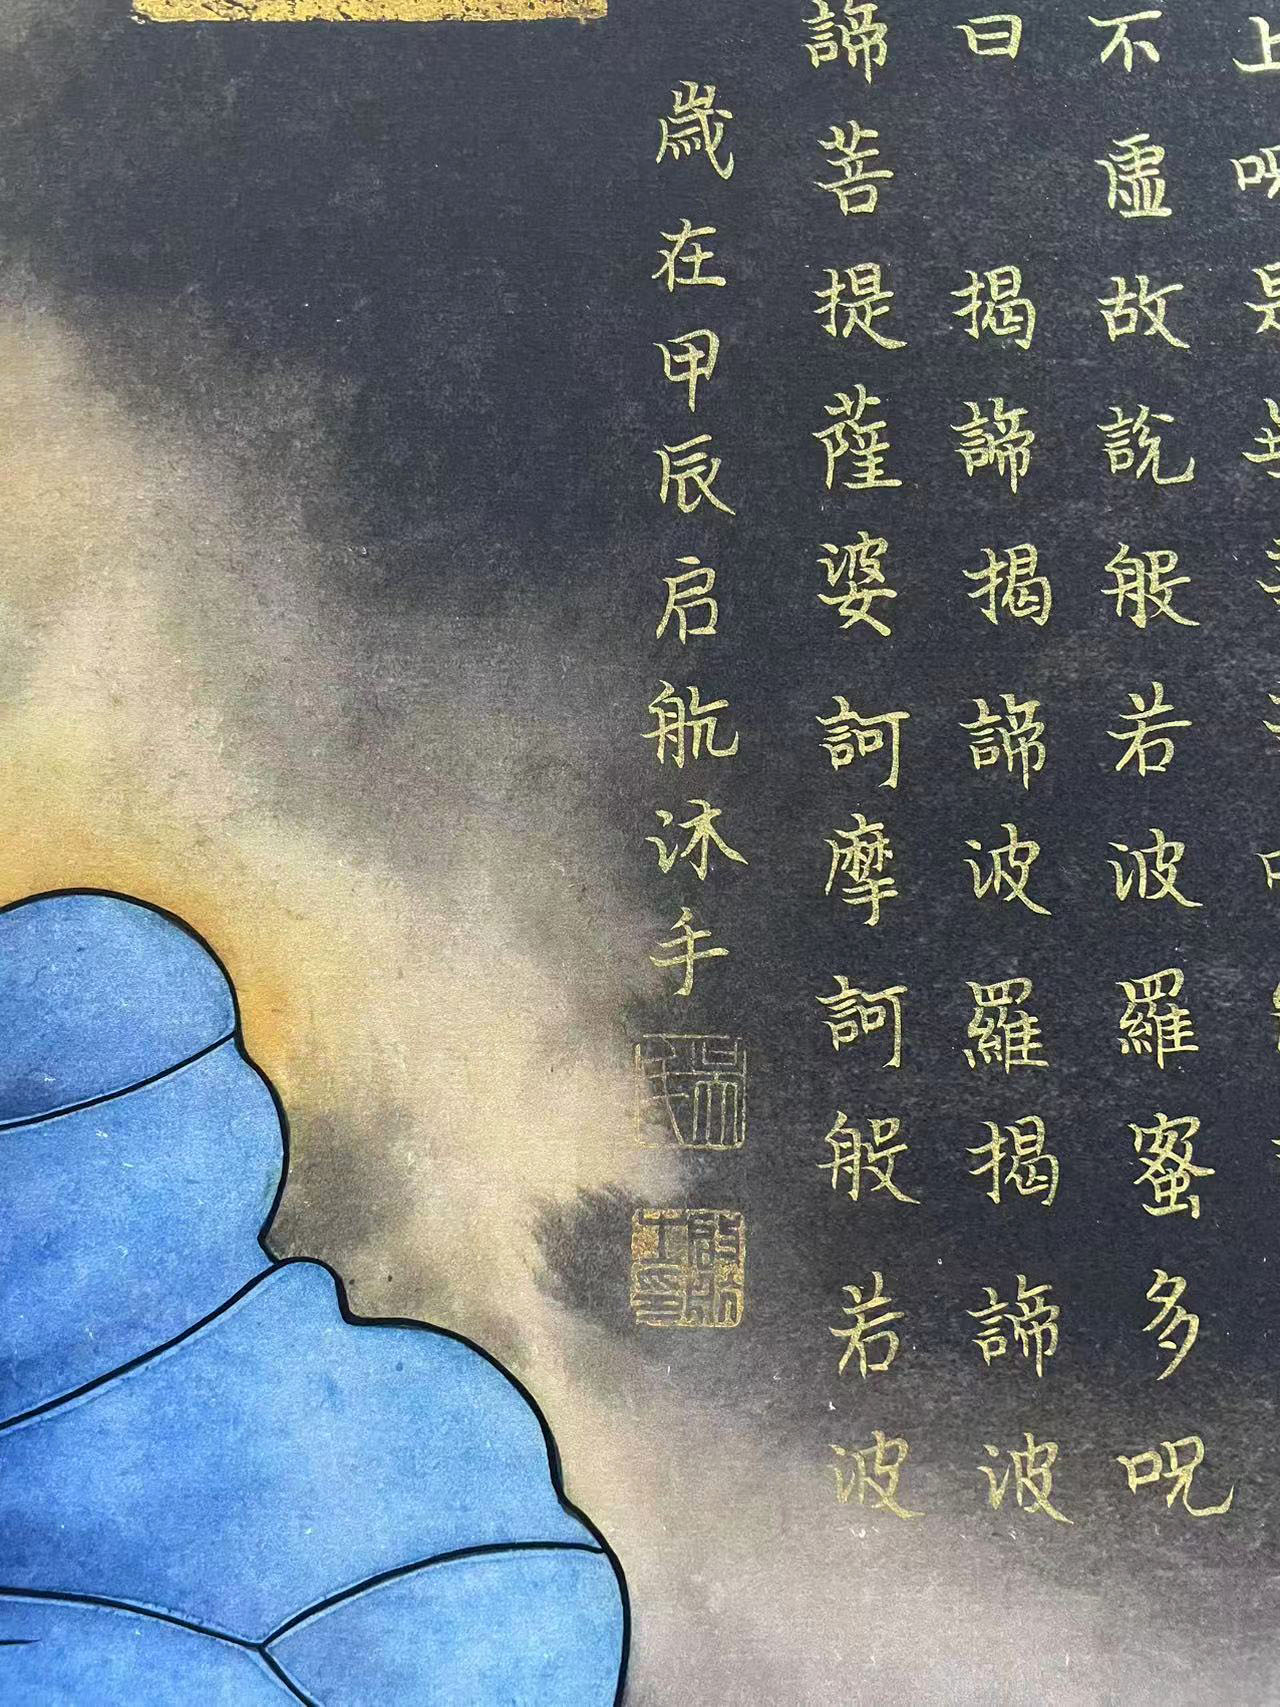 上呪是
不虛故說般若波羅蜜多呪
曰 揭諦揭諦波羅揭諦波
諦菩提薩婆訶摩訶般若波
歲在甲辰启航沐手
吳氏
啟航之印